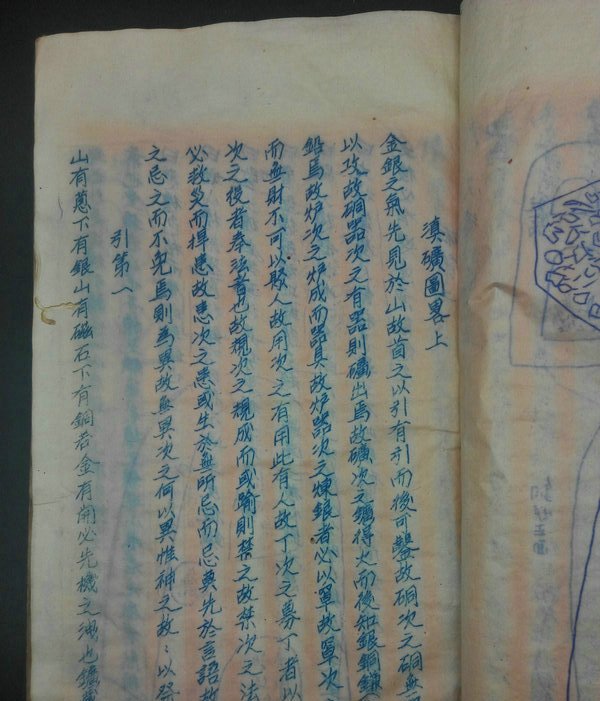 滇礦圖畧上
金銀之氣先見於山故首之以引有引而後可鑿故硐次之硐無
以攻故硐器次之有器則礦出焉故礦次之鑛得火而後知銀銅鑛
鉛焉故炉次之炉成而器具故炉器次之煉銀者必以罩故罩次
而無財不可以聚人故用次之有用此有人故丁次之募丁者以
次之役者奉法者也故規次之規成而或踰則禁之故禁次之法
必救災而捍患故患次之患或生於無所忌而忌莫先於言語故
之忌之而不免焉則為異故無異次之何以異惟神之故：以祭
引第一
山有蔥下有銀山有磁石下有銅若金有開必先機之洩也鑛